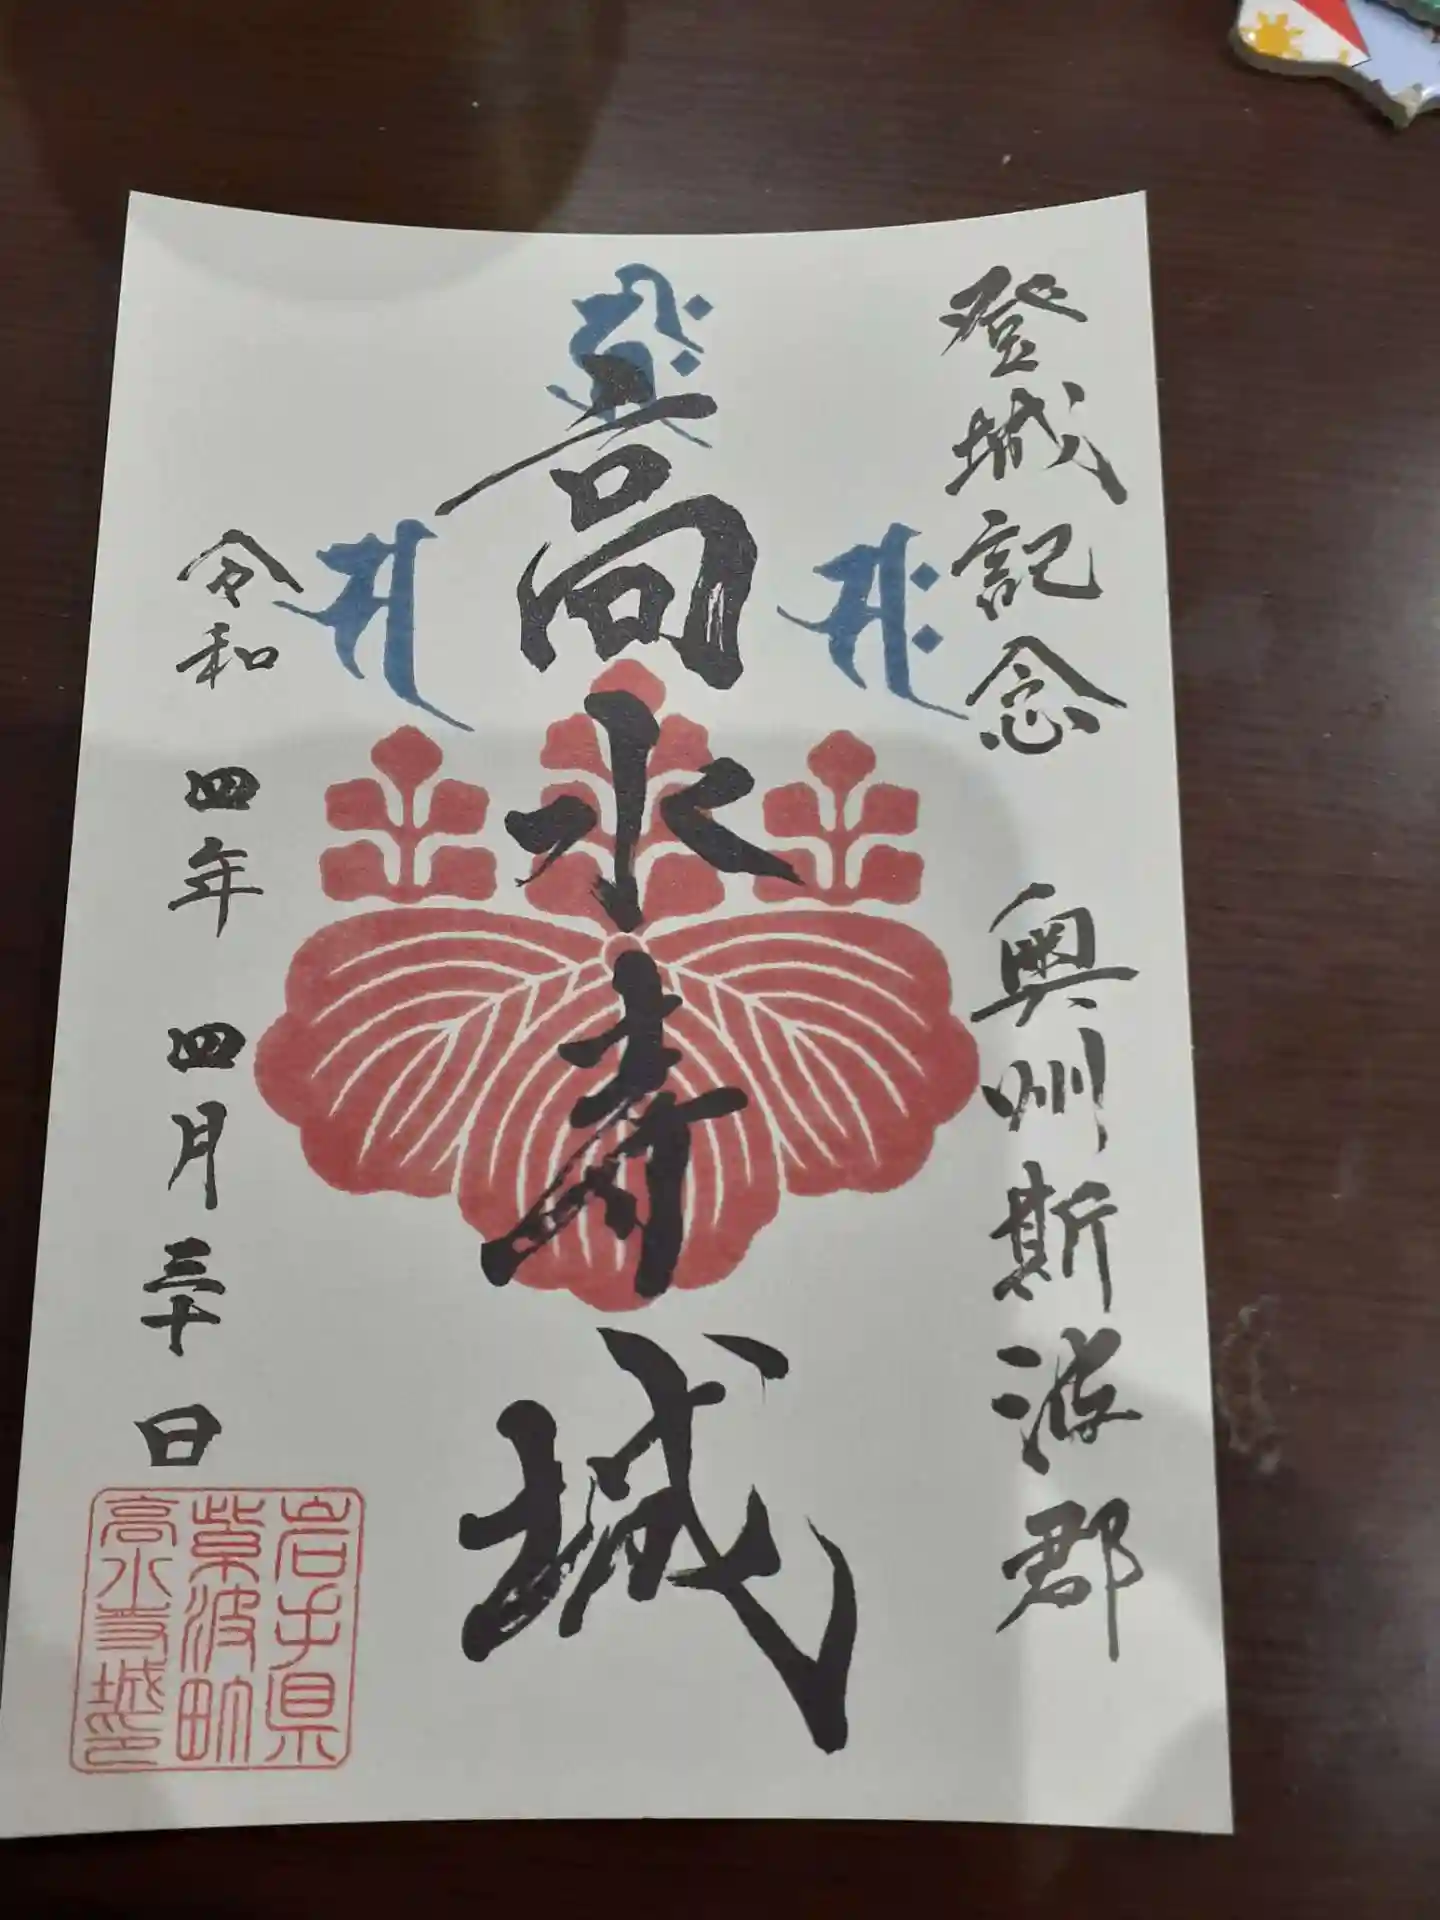 登城記念 奥州斯波郡
高水寺城
令和四年 四月三十日
岩手県
紫波町
高水寺城印